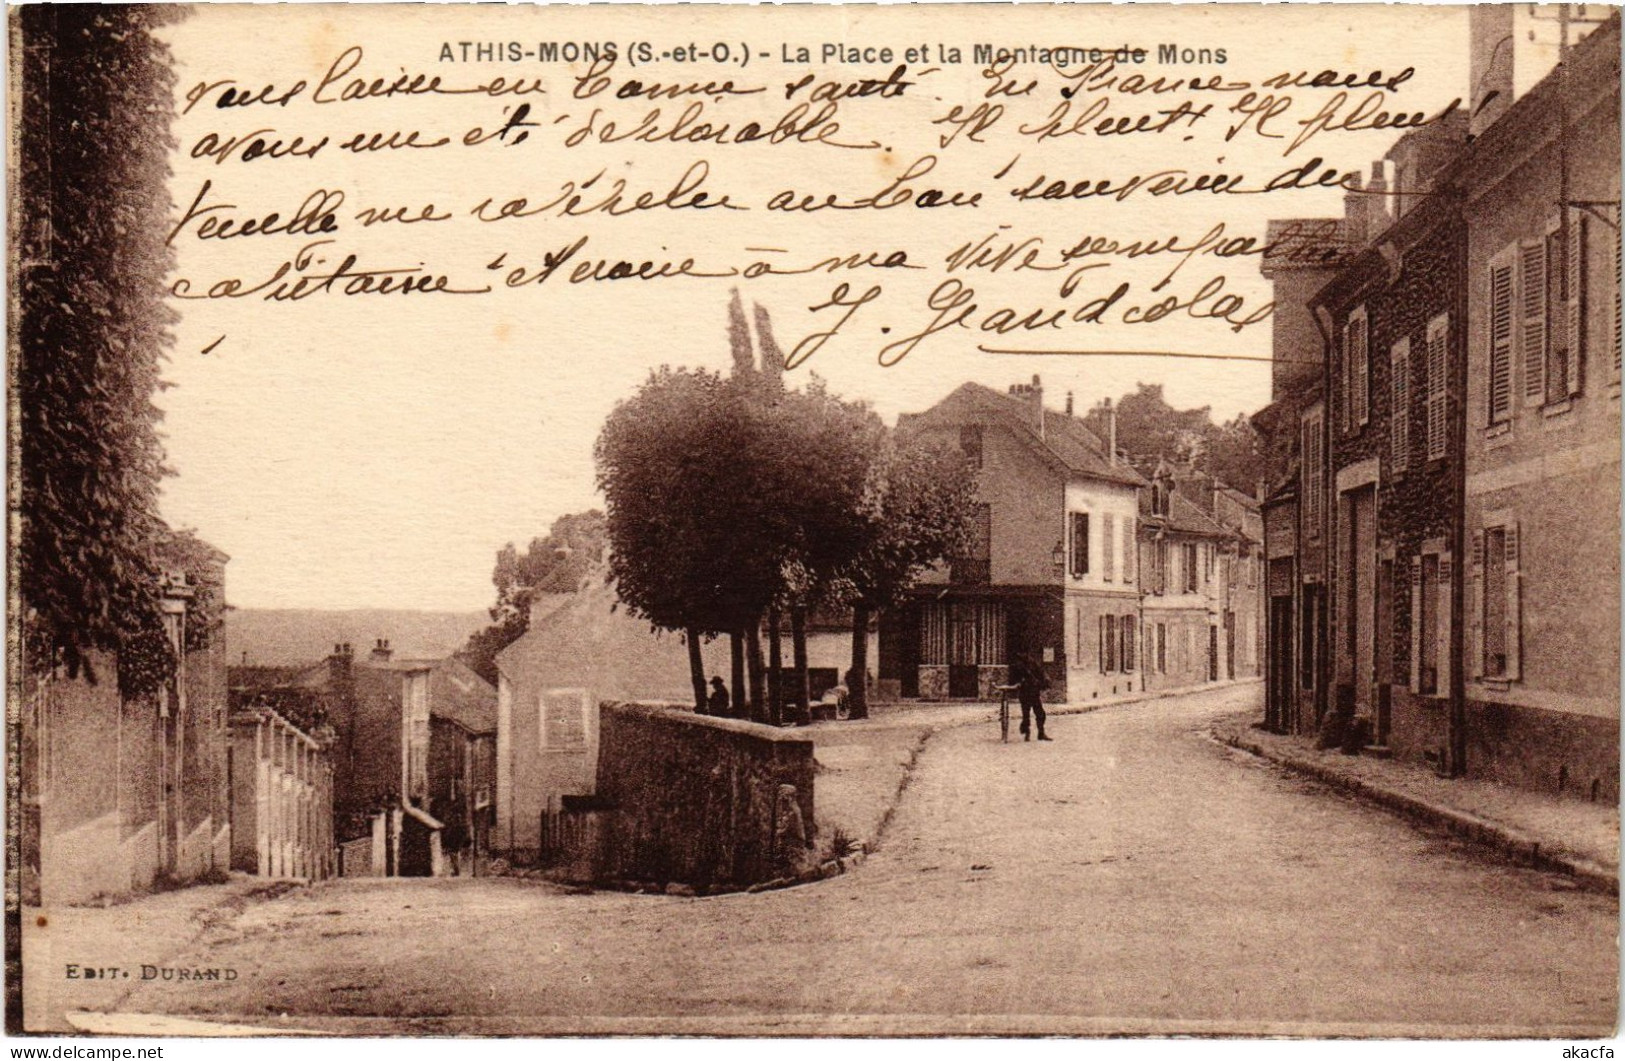 ATHIS-MONS (S.-et-O.) - La Place et la Montagne de Mons
vous laisse en bonne santé. En France nous
avons un été déplorable. Il pleut! Il pleut
Veuille me rappeler au bon souvenir du
capitaine et croire à ma vive sympathie
J. Grandcolas
EDIT. DURAND
delcampe.net
akacfa